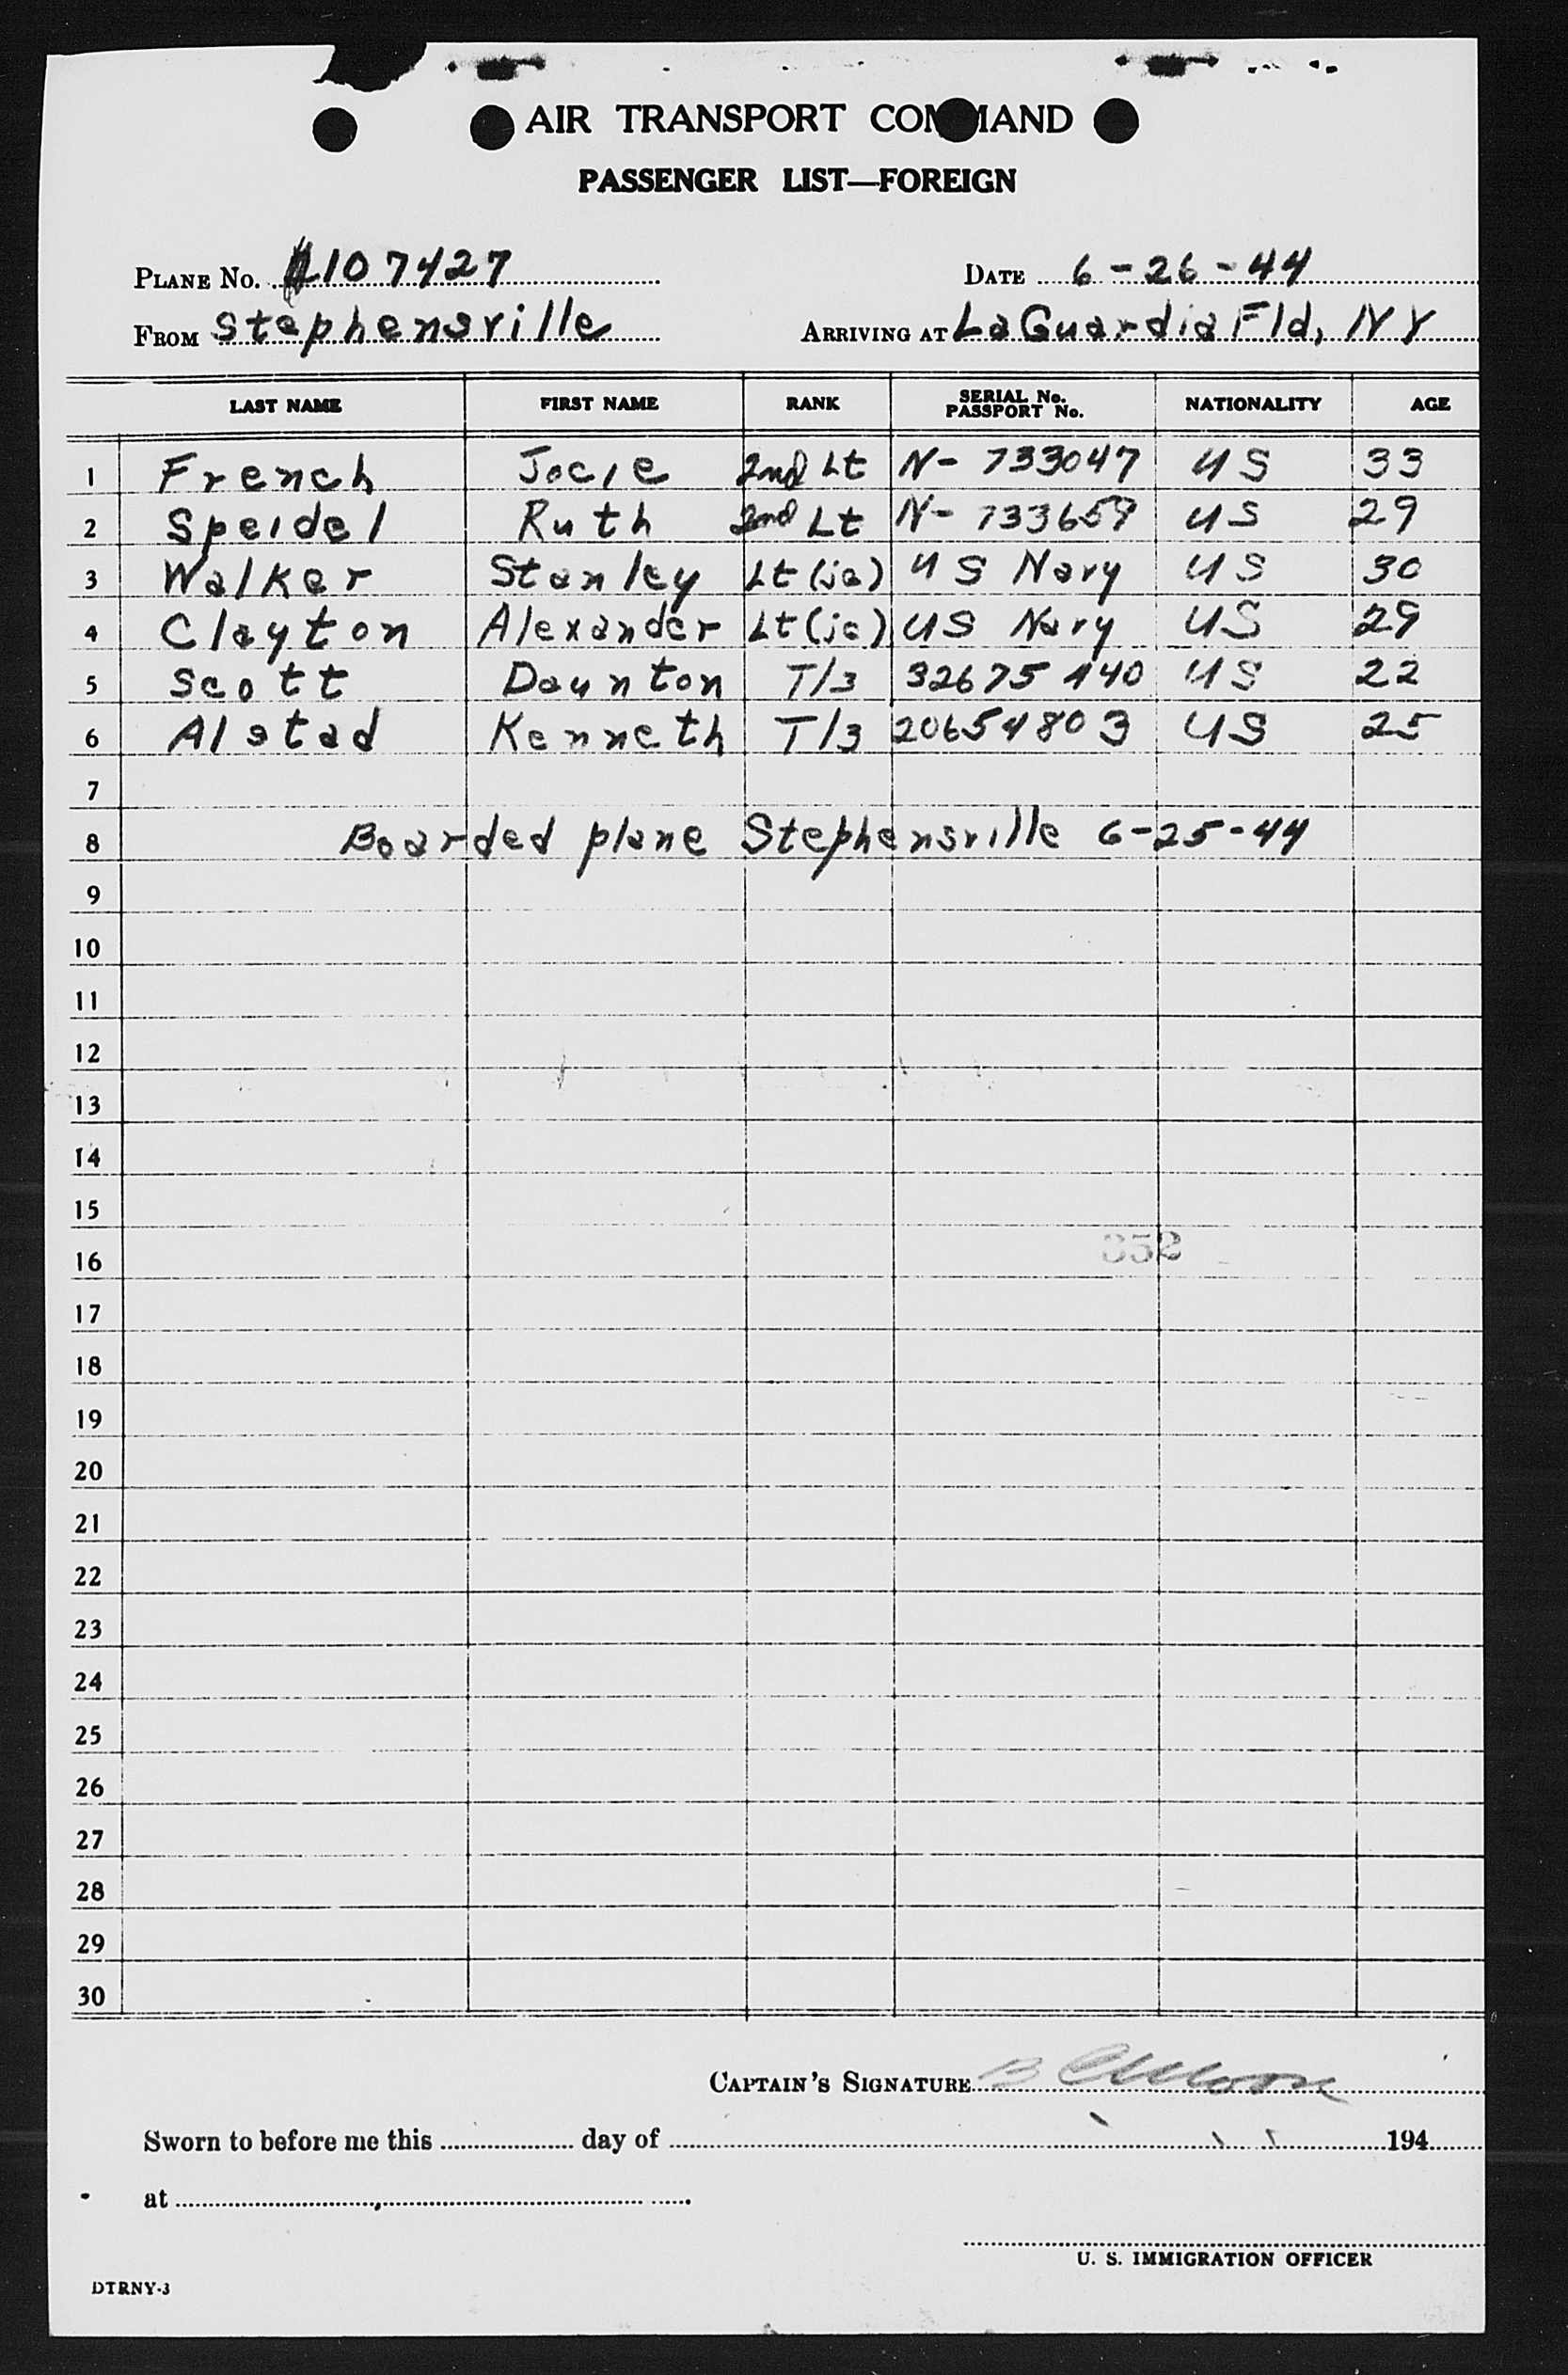 AIR TRANSPORT COMMAND
PASSENGER LIST—FOREIGN
PLANE NO. 107427 DATE 6-26-44
FROM Stephensville ARRIVING AT LaGuardia Fld, NY
LAST NAME FIRST NAME RANK SERIAL No. PASSPORT No. NATIONALITY AGE
1 French Jocie 2nd Lt N-733047 US 33
2 Speidel Ruth 2nd Lt N-733659 US 29
3 Walker Stanley Lt (jg) US Navy US 30
4 Clayton Alexander Lt (jg) US Navy US 29
5 Scott Daunton T/3 32675140 US 22
6 Alstad Kenneth T/3 20654803 US 25
7
8 Boarded plane Stephensville 6-25-44
9
10
11
12
13
14
15
16 352
17
18
19
20
21
22
23
24
25
26
27
28
29
30
CAPTAIN'S SIGNATURE
Sworn to before me this day of 194
at
U. S. IMMIGRATION OFFICER
DTRNY-3